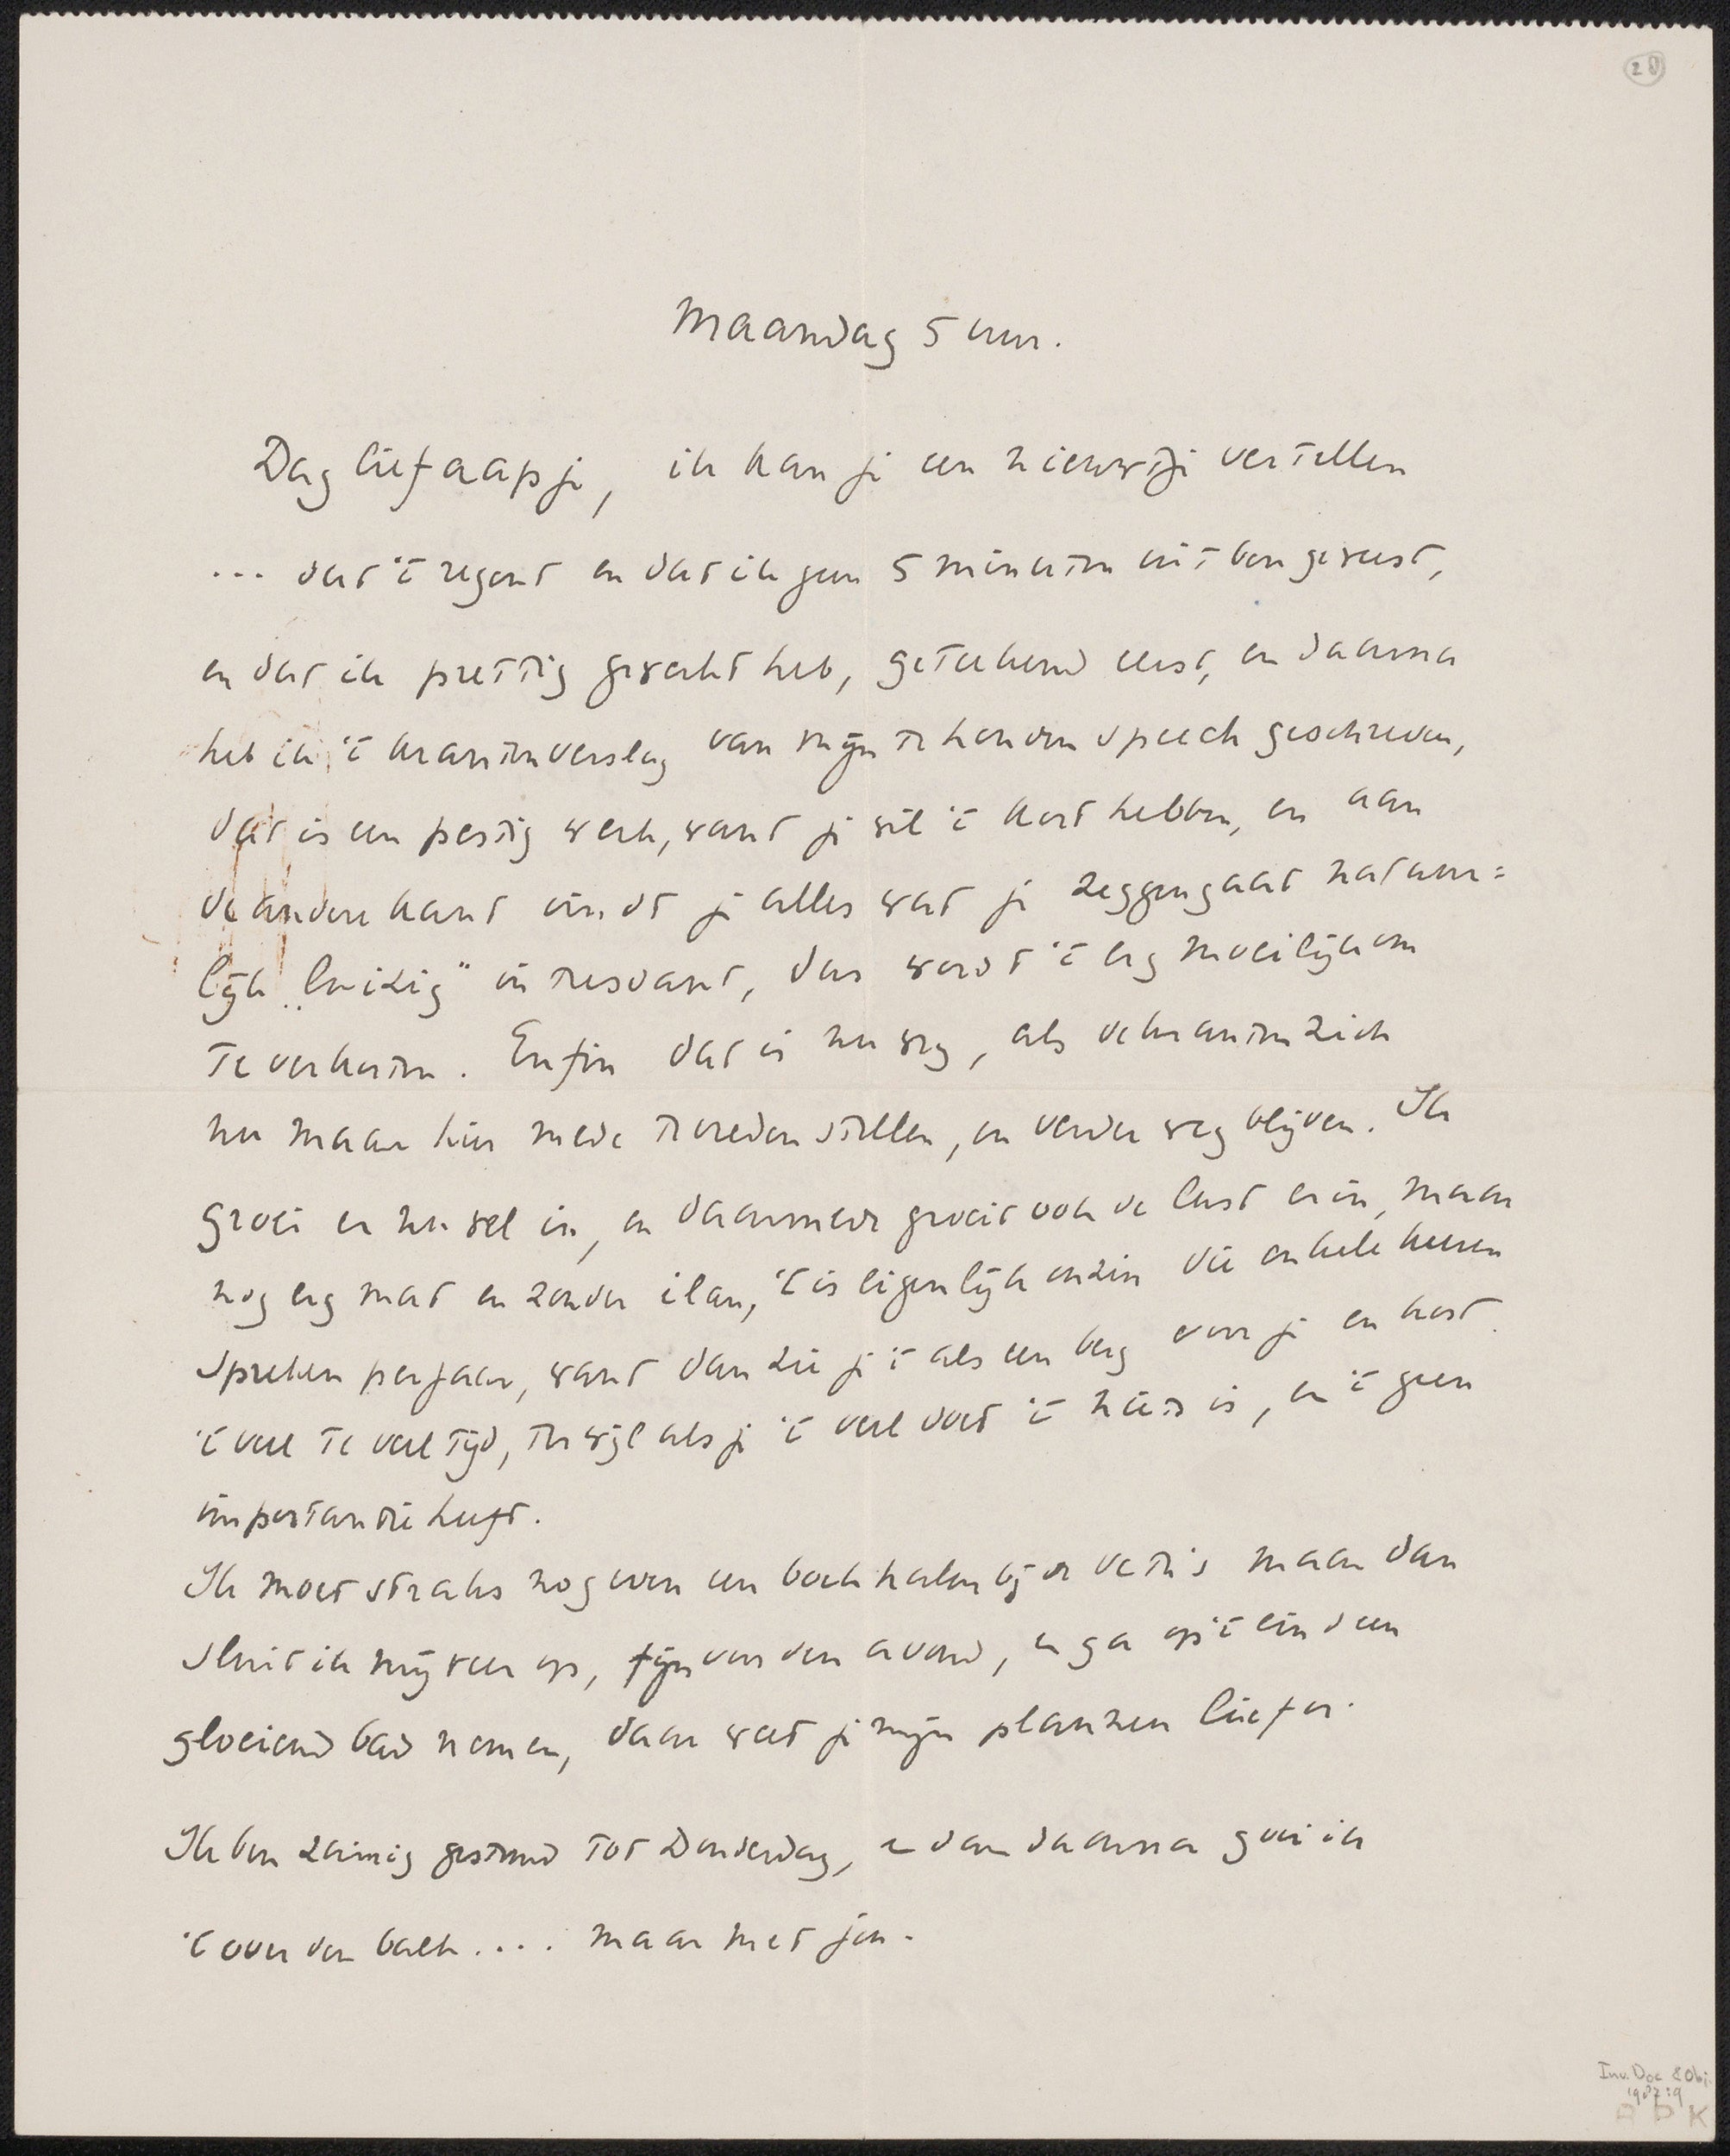 28
Maandag 5 uur.
Dag lief aapje, ik kan je een nieuwtje vertellen
... dat 't regent en dat ik geen 5 minuten uit ben geweest,
en dat ik prettig gewerkt heb, geteekend eerst, en daarna
heb ik 't krantenverslag van mijn te houden speech geschreven,
dat is een pestig werk, want je wil 't kort hebben, en aan
de andere kant vindt je alles wat je zeggen gaat natuur=
lijk „luizig" intressant, dus wordt 't erg moeilijk om
te verkorten. Enfin dat is nu weg, als de kranten zich
nu maar hier mede tevreden stellen, en verder weg blijven. Ik
groei er nu wel in, en daarmede groeit ook de lust erin, maar
nog erg mat en zonder elan, 't is eigenlijk onzin die enkele keeren
spreken per jaar, want dan zie je 't als een berg voor je en kost
't veel te veel tijd, terwijl als je 't veel doet 't niets is, en 't geen
importantie heeft.
Ik moet straks nog even een boek halen bij de maar dan
sluit ik mij weer op, fijn voor den avond, en ga op 't eind een
gloeiend bad nemen, daar weet je mijn plannen liefer.
Ik ben zuinig gestemd tot Donderdag, en dan daarna gooi ik
't over den balk.... maar met jou.
Inv. Doc & Obj.
1987:9
R D K